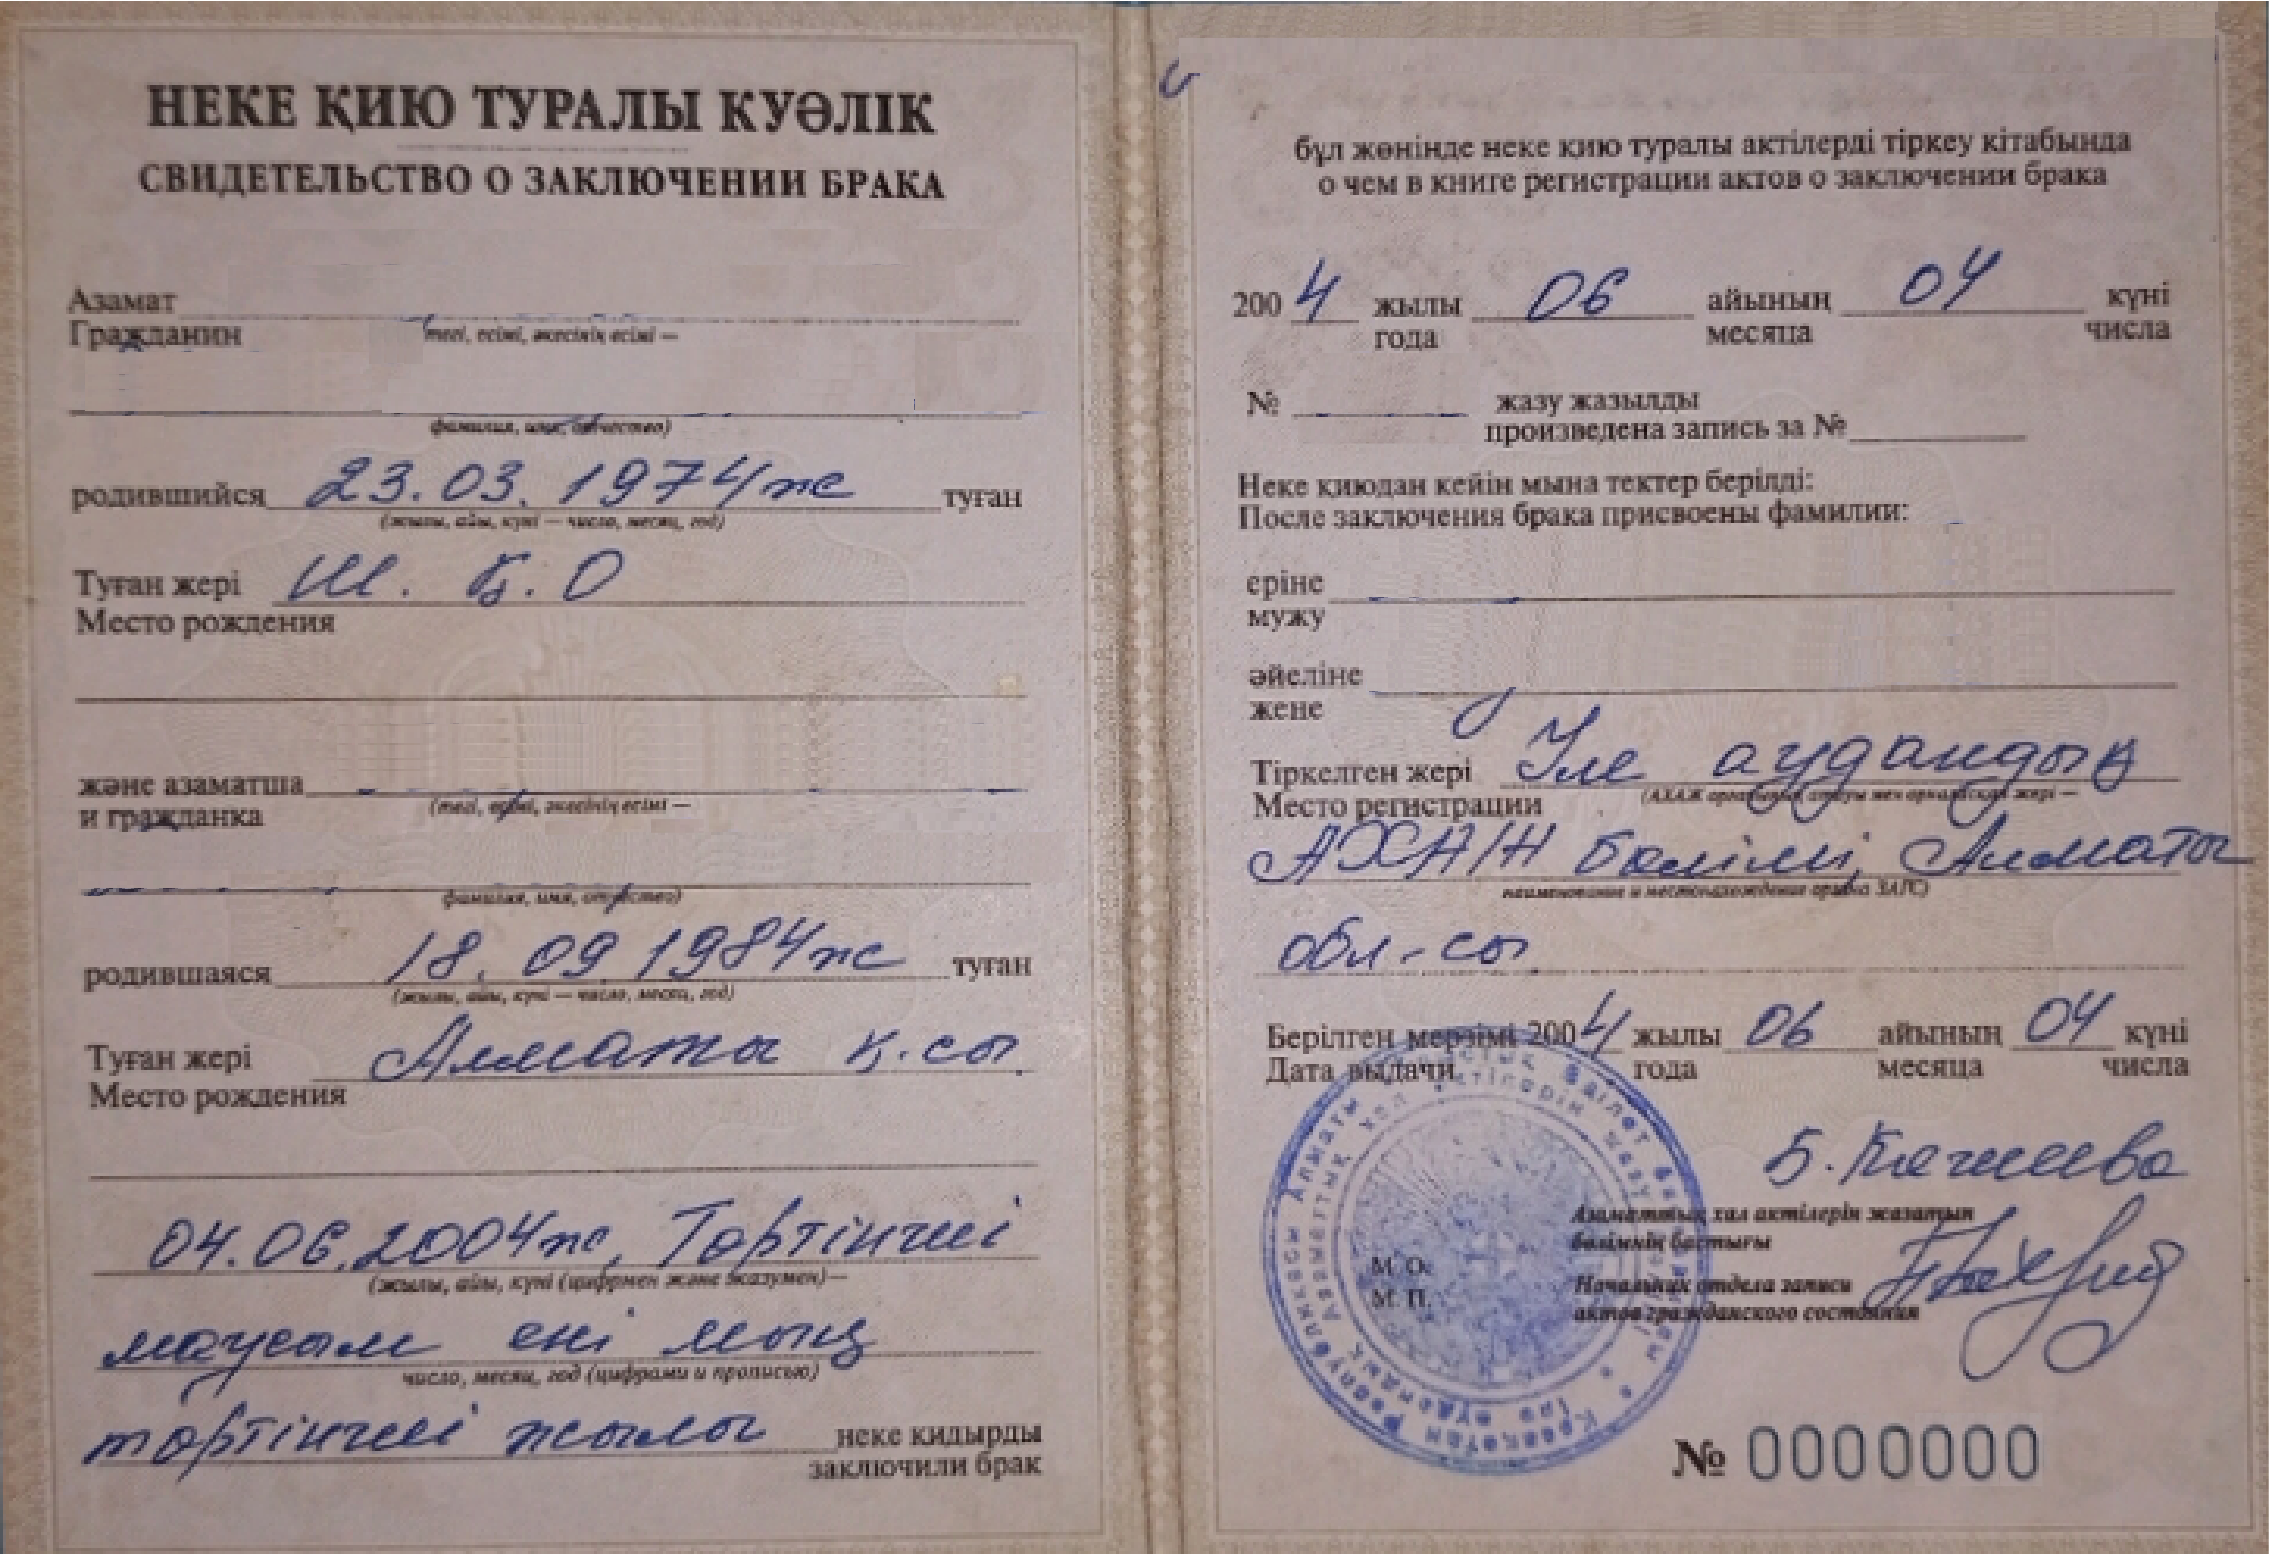 НЕКЕ ҚИЮ ТУРАЛЫ КУӘЛІК
СВИДЕТЕЛЬСТВО О ЗАКЛЮЧЕНИИ БРАКА
Азамат
Гражданин
(тегі, есімі, әкесінің есімі —
фамилия, имя, отчество)
родившийся 23.03.1974ж туған
(жылы, айы, күні — число, месяц, год)
Туған жері Ш. Қ. О
Место рождения
және азаматша
и гражданка
(тегі, есімі, әкесінің есімі —
фамилия, имя, отчество)
родившаяся 18.09.1984ж туған
(жылы, айы, күні — число, месяц, год)
Туған жері Алматы қ.сы.
Место рождения
04.06.2004ж, Төртінші
(жылы, айы, күні (цифрмен және жазумен)—
маусым екі мың
число, месяц, год (цифрами и прописью)
төртінші жылы неке қидырды
заключили брак
бұл жөнінде неке қию туралы актілерді тіркеу кітабында
о чем в книге регистрации актов о заключении брака
2004 жылы 06 айының 04 күні
года месяца числа
№ жазу жазылды
произведена запись за №
Неке қиюдан кейін мына тектер берілді:
После заключения брака присвоены фамилии:
еріне
мужу
әйеліне
жене
Тіркелген жері Іле аудандық
Место регистрации
(АХАЖ органының атауы мен орналасқан жері —
АХАЖ бөлімі, Алматы
наименование и местонахождение органа ЗАГС)
обл-сы
Берілген мерзімі 2004 жылы 06 айының 04 күні
Дата выдачи года месяца числа
Азаматтық хал актілерін жазатын
бөлімнің бастығы
М. О.
М. П.
Начальник отдела записи
актов гражданского состояния
№ 0000000